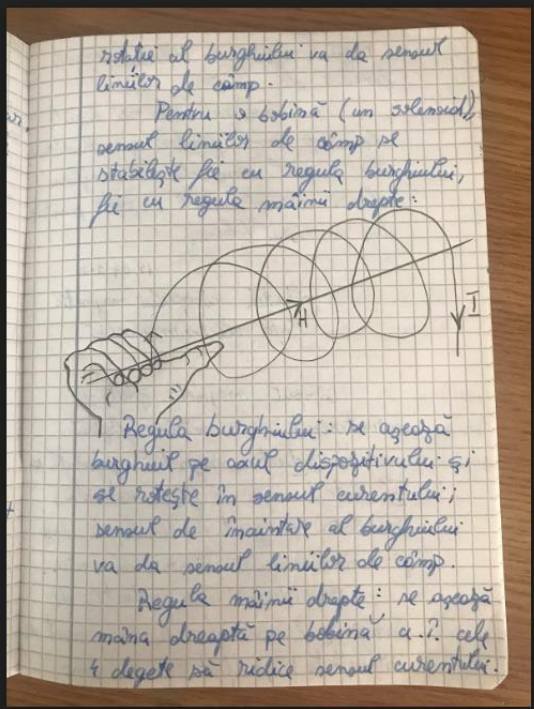 rotație al burghiului va da sensul
liniilor de câmp.
Pentru o bobină (un solenoid),
sensul liniilor de câmp se
stabilește fie cu regula burghiului,
fie cu regula mâinii drepte:
H
I
Regula burghiului: se așează
burghiul pe axul dispozitivului și
se rotește în sensul curentului;
sensul de înaintare al burghiului
va da sensul liniilor de câmp.
Regula mâinii drepte: se așează
mâna dreaptă pe bobină a.î. cele
4 degete să ridice sensul curentului.